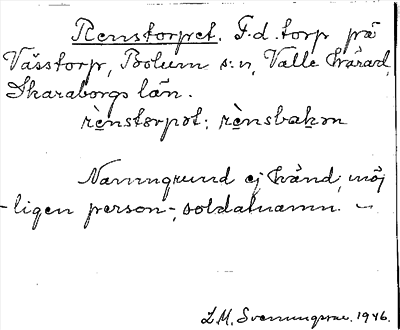 Renstorpet. F.d. torp på
Västorp, Bolum s:n, Valle härad,
Skaraborgs län.
rènstørpət: rènsbakən
Namngrund ej känd, möj
-ligen person-, soldatnamn. –
L.M. Svenungsson. 1946.